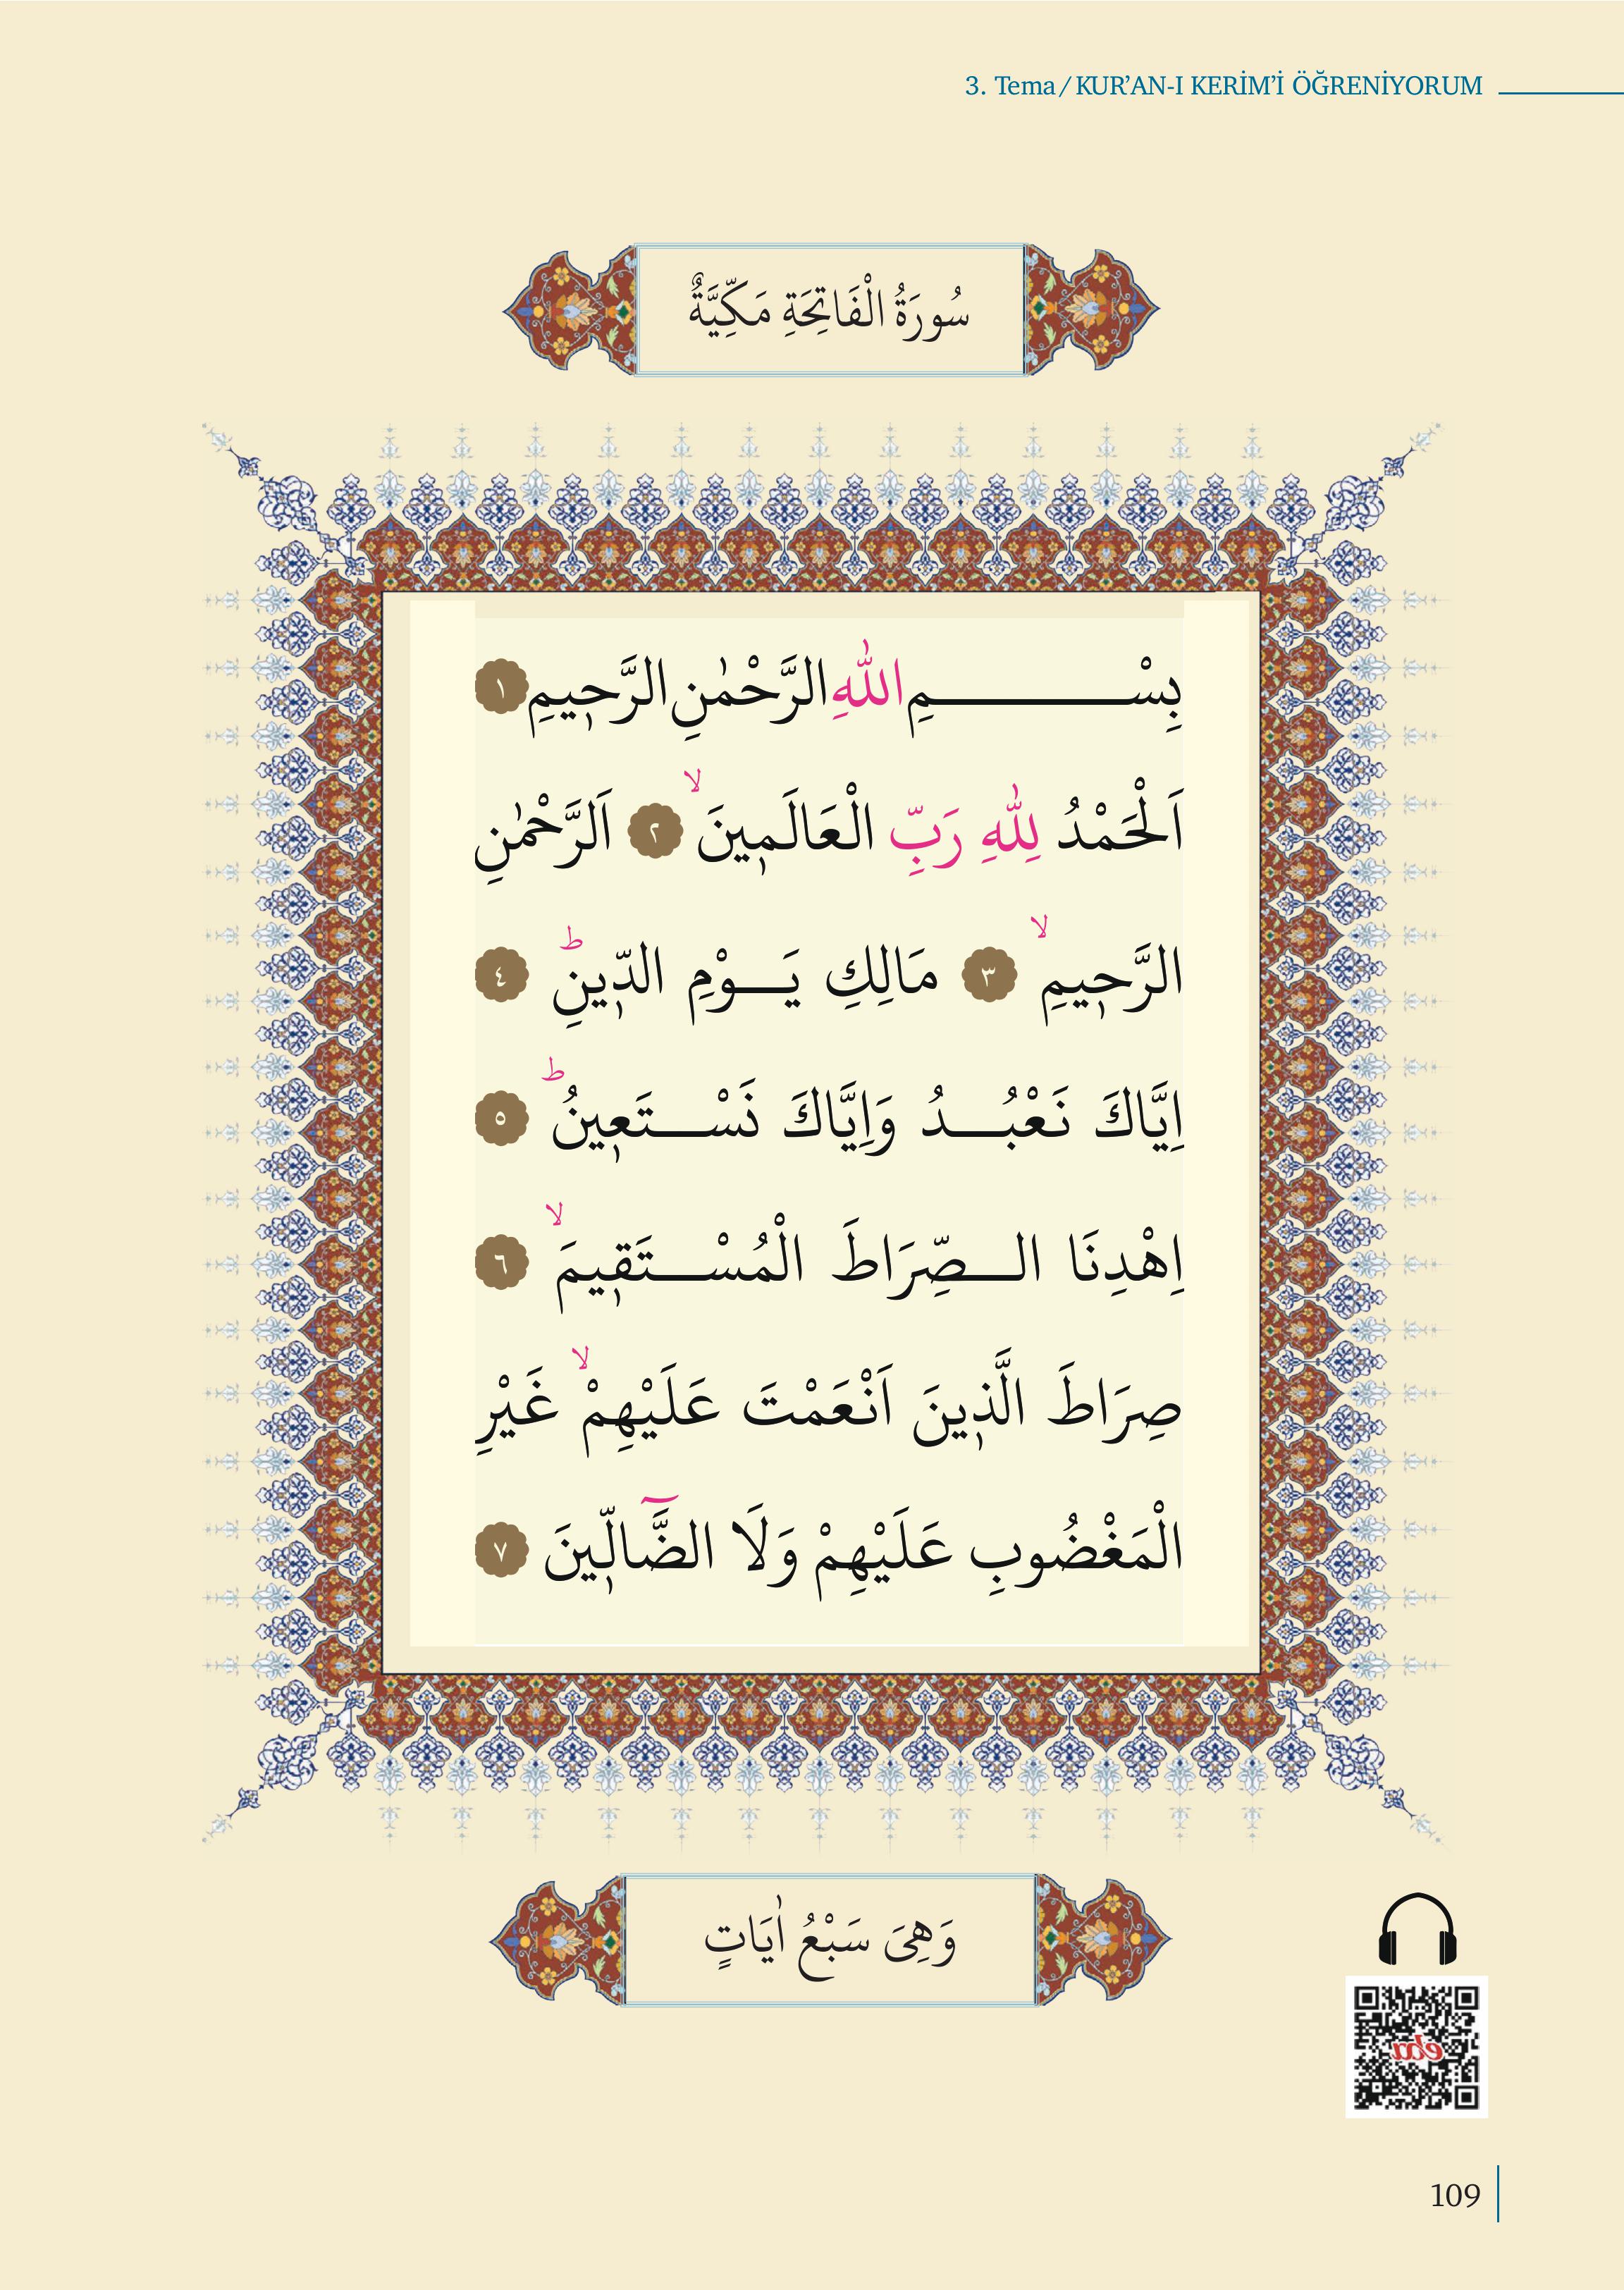 3. Tema/KUR’AN-I KERİM’İ ÖĞRENİYORUM
سُورَةُ الْفَاتِحَةِ مَكِّيَّةٌ
بِسْـــــــــــمِ اللّٰهِ الرَّحْمٰنِ الرَّح۪يمِ ١
اَلْحَمْدُ لِلّٰهِ رَبِّ الْعَالَم۪ينَۙ ٢ اَلرَّحْمٰنِ
الرَّح۪يمِۙ ٣ مَالِكِ يَـــوْمِ الدّ۪ينِۜ ٤
اِيَّاكَ نَعْبُـــدُ وَاِيَّاكَ نَسْـــتَع۪ينُۜ ٥
اِهْدِنَا الـــصِّرَاطَ الْمُسْـــتَق۪يمَۙ ٦
صِرَاطَ الَّذ۪ينَ اَنْعَمْتَ عَلَيْهِمْۙ غَيْرِ
الْمَغْضُوبِ عَلَيْهِمْ وَلَا الضَّٓالّ۪ينَ ٧
وَهِىَ سَبْعُ اٰيَاتٍ
eba
109